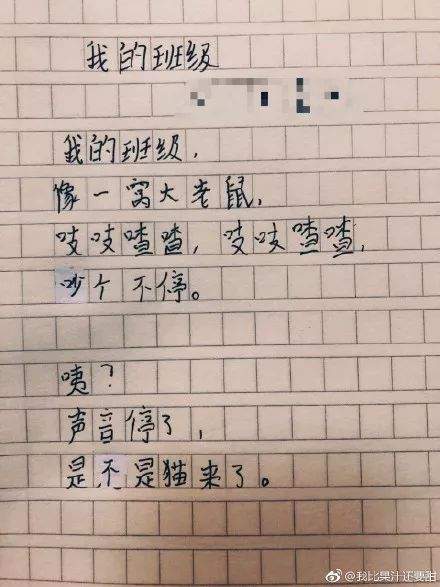 我的班级
我的班级，
像一窝大老鼠，
吱吱喳喳，吱吱喳喳，
吵个不停。
咦？
声音停了，
是不是猫来了。
@我比果汁还要甜